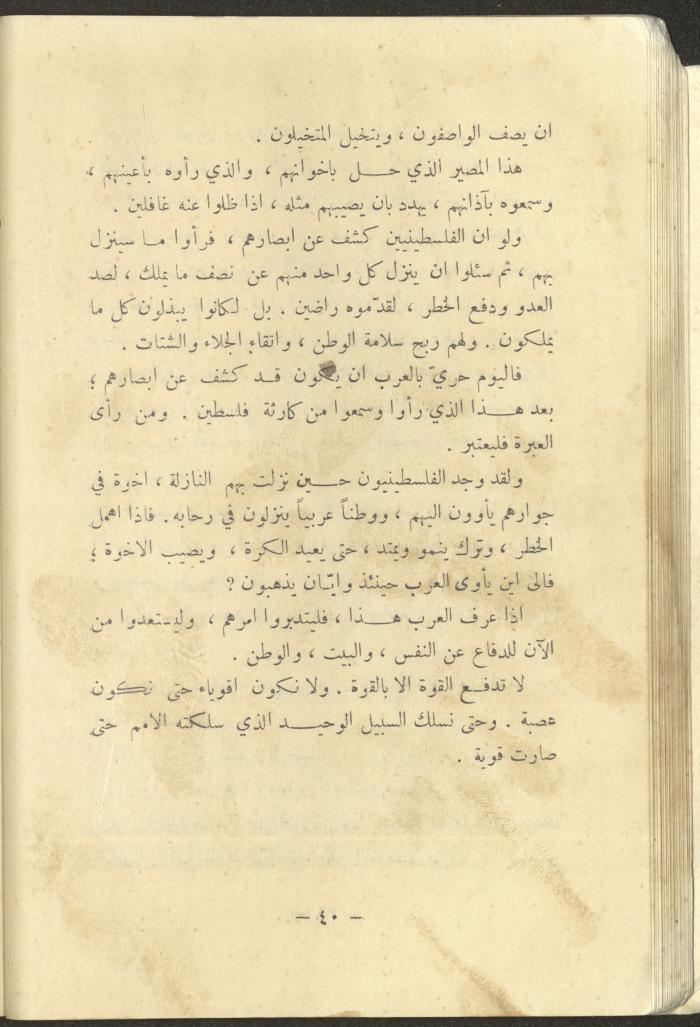 ان يصف الواصفون ، ويتخيل المتخيلون .
هذا المصير الذي حــل باخوانهم ، والذي رأوه بأعينهم ،
وسمعوه بآذانهم ، يهدد بان يصيبهم مثله ، اذا ظلوا عنه غافلين .
ولو ان الفلسطينيين كشف عن ابصارهم ، فرأوا مــا سينزل
بهم ، ثم سئلوا ان ينزل كل واحد منهم عن نصف ما يملك ، لصد
العدو ودفع الخطر ، لقدّموه راضين . بل لكانوا يبذلون كل ما
يملكون . ولهم ربح سلامة الوطن ، واتقاء الجلاء والشتات .
فاليوم حريّ بالعرب ان يكون قــد كشف عن ابصارهم ؛
بعد هــذا الذي رأوا وسمعوا من كارثة فلسطين . ومن رأى
العبرة فليعتبر .
ولقد وجد الفلسطينيون حــين نزلت بهم النازلة ، اخوة في
جوارهم يأوون اليهم ، ووطناً عربياً ينزلون في رحابه . فاذا اهمل
الخطر ، وترك ينمو ويمتد ، حتى يعيد الكرة ، ويصيب الاخوة ؛
فالى اين يأوى العرب حينئذ وايّــان يذهبون ؟
اذا عرف العرب هــذا ، فليتدبروا امرهم ، وليستعدوا من
الآن للدفاع عن النفس ، والبيت ، والوطن .
لا تدفــع القوة الا بالقوة . ولا نكون اقوياء حتى نكون
عصبة . وحتى نسلك السبيل الوحيــد الذي سلكته الامم حتى
صارت قوية .
— ٤٠ —